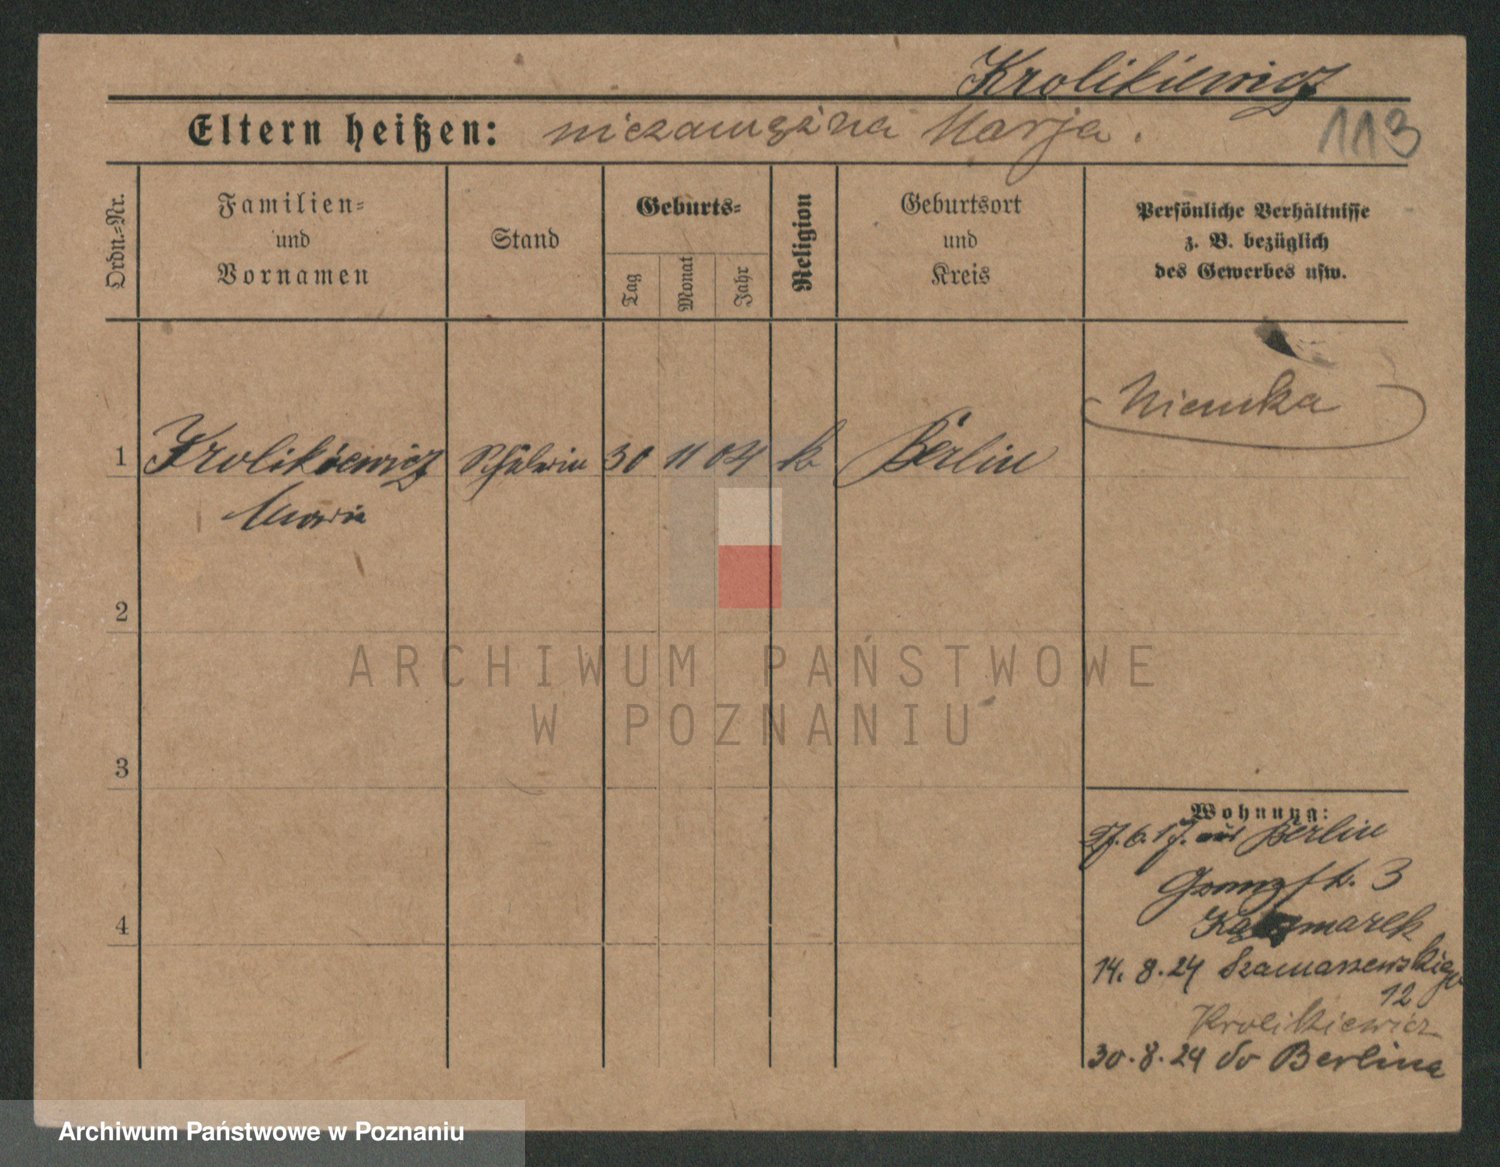 Krolikiewicz
Eltern heißen: niezamężna Marja.
113
Ordn.-Nr.
Familien-
und
Vornamen
Stand
Geburts-
Tag
Monat
Jahr
Religion
Geburtsort
und
Kreis
Persönliche Verhältnisse
z. B. bezüglich
des Gewerbes usw.
Niemka
1 Krolikiewicz Schülerin 30 11 04 k Berlin
Maria
2
ARCHIWUM PAŃSTWOWE
W POZNANIU
3
4
Wohnung:
27.6.17. aus Berlin
3
Kaczmarek
14. 8. 24 Szamarzewskiego
12
Krolikiewicz
30. 8. 24 do Berlina
Archiwum Państwowe w Poznaniu